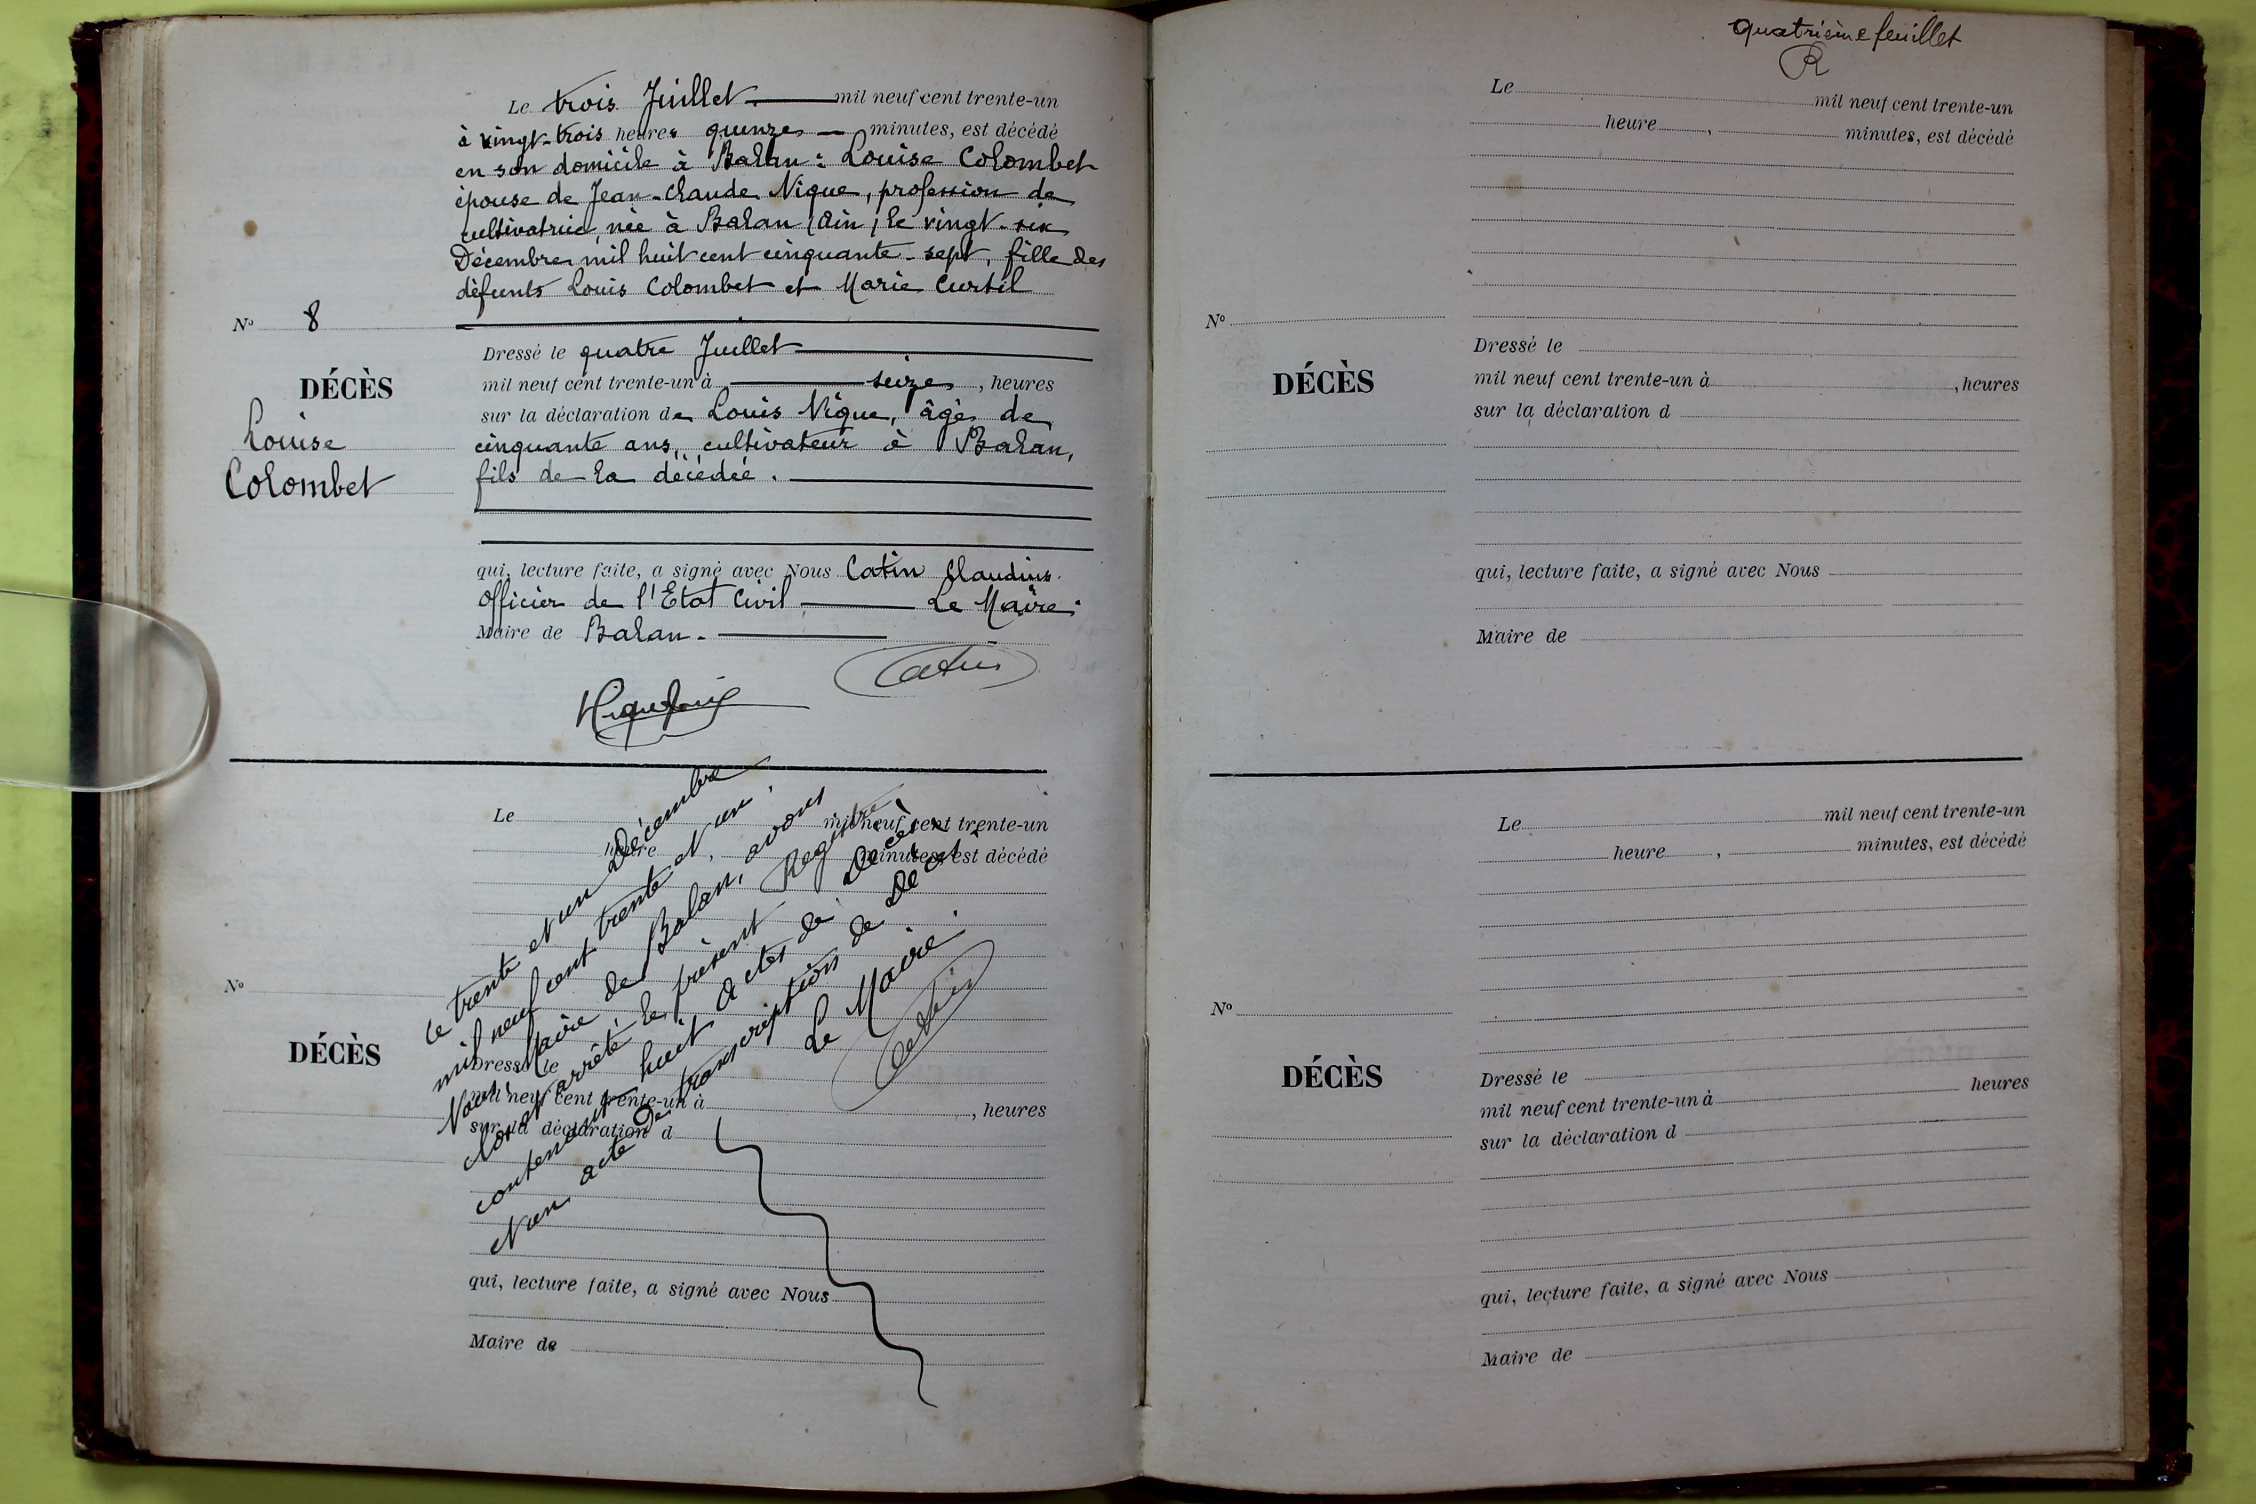 Le trois Juillet mil neuf cent trente-un
à vingt-trois heures quinze minutes, est décédé
en son domicile à Balan : Louise Colombet
épouse de Jean-Claude Nique, profession de
cultivatrice, née à Balan (Ain) le vingt-six
Décembre mil huit cent cinquante-sept, fille des
défunts Louis Colombet et Marie Curtil
N° 8
DÉCÈS
Louise
Colombet
Dressé le quatre Juillet
mil neuf cent trente-un à seize, heures
sur la déclaration de Louis Nique, âgé de
cinquante ans, cultivateur à Balan,
fils de la décédée.
qui, lecture faite, a signé avec Nous Catin Claudius
Officier de l'Etat Civil Le Maire :
Maire de Balan.
Catin
Nique Louis
Le mil neuf cent trente-un
heure, minutes, est décédé
N°
DÉCÈS
Dressé le
mil neuf cent trente-un à , heures
sur la déclaration d
qui, lecture faite, a signé avec Nous
Maire de
Ce trente et un Décembre
mil neuf cent trente et un,
Nous, Maire de Balan, avons
clos et arrêté le présent Registre
contenant huit actes de Décès
et un acte de transcription de Décès.
Le Maire.
Catin
quatrième feuillet
R
Le mil neuf cent trente-un
heure , minutes, est décédé
N°
DÉCÈS
Dressé le
mil neuf cent trente-un à , heures
sur la déclaration d
qui, lecture faite, a signé avec Nous
Maire de
Le mil neuf cent trente-un
heure , minutes, est décédé
N°
DÉCÈS
Dressé le
mil neuf cent trente-un à heures
sur la déclaration d
qui, lecture faite, a signé avec Nous
Maire de